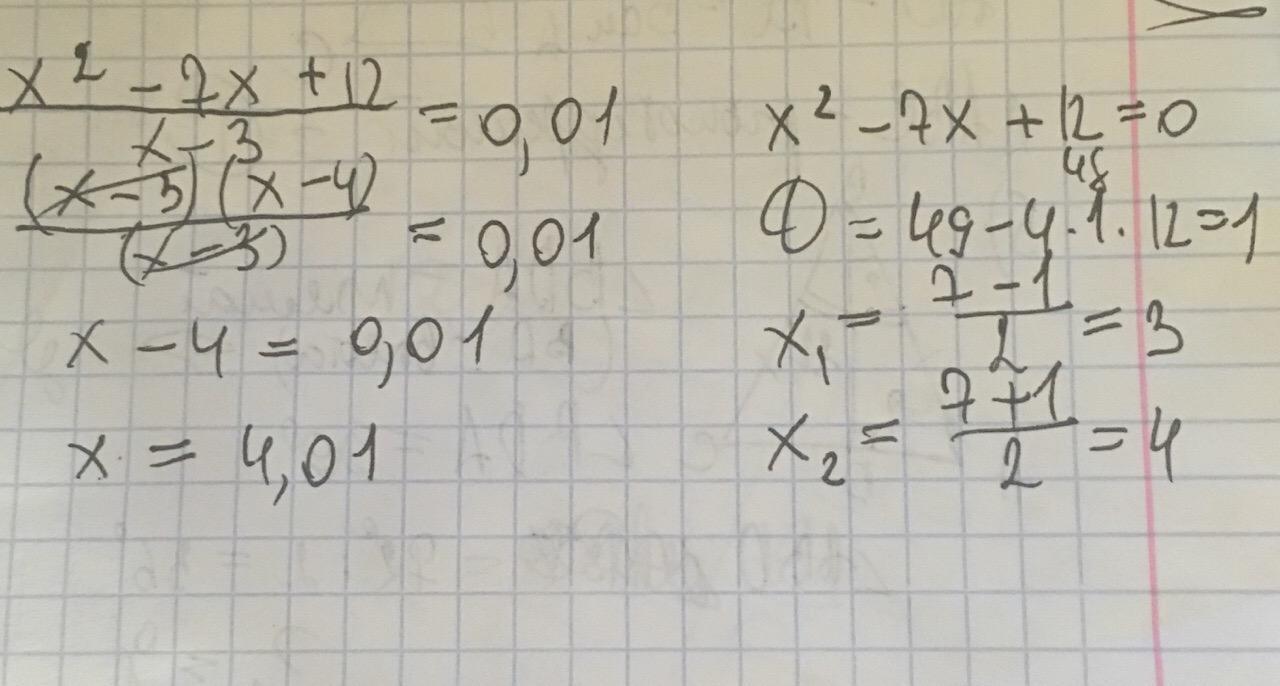 x² - 7x + 12
x - 3
= 0,01
(x - 3) (x - 4)
(x - 3)
= 0,01
x - 4 = 0,01
x = 4,01
x² - 7x + 12 = 0
48
D = 49 - 4·1·12 = 1
x₁ = (7 - 1)/2 = 3
x₂ = (7 + 1)/2 = 4